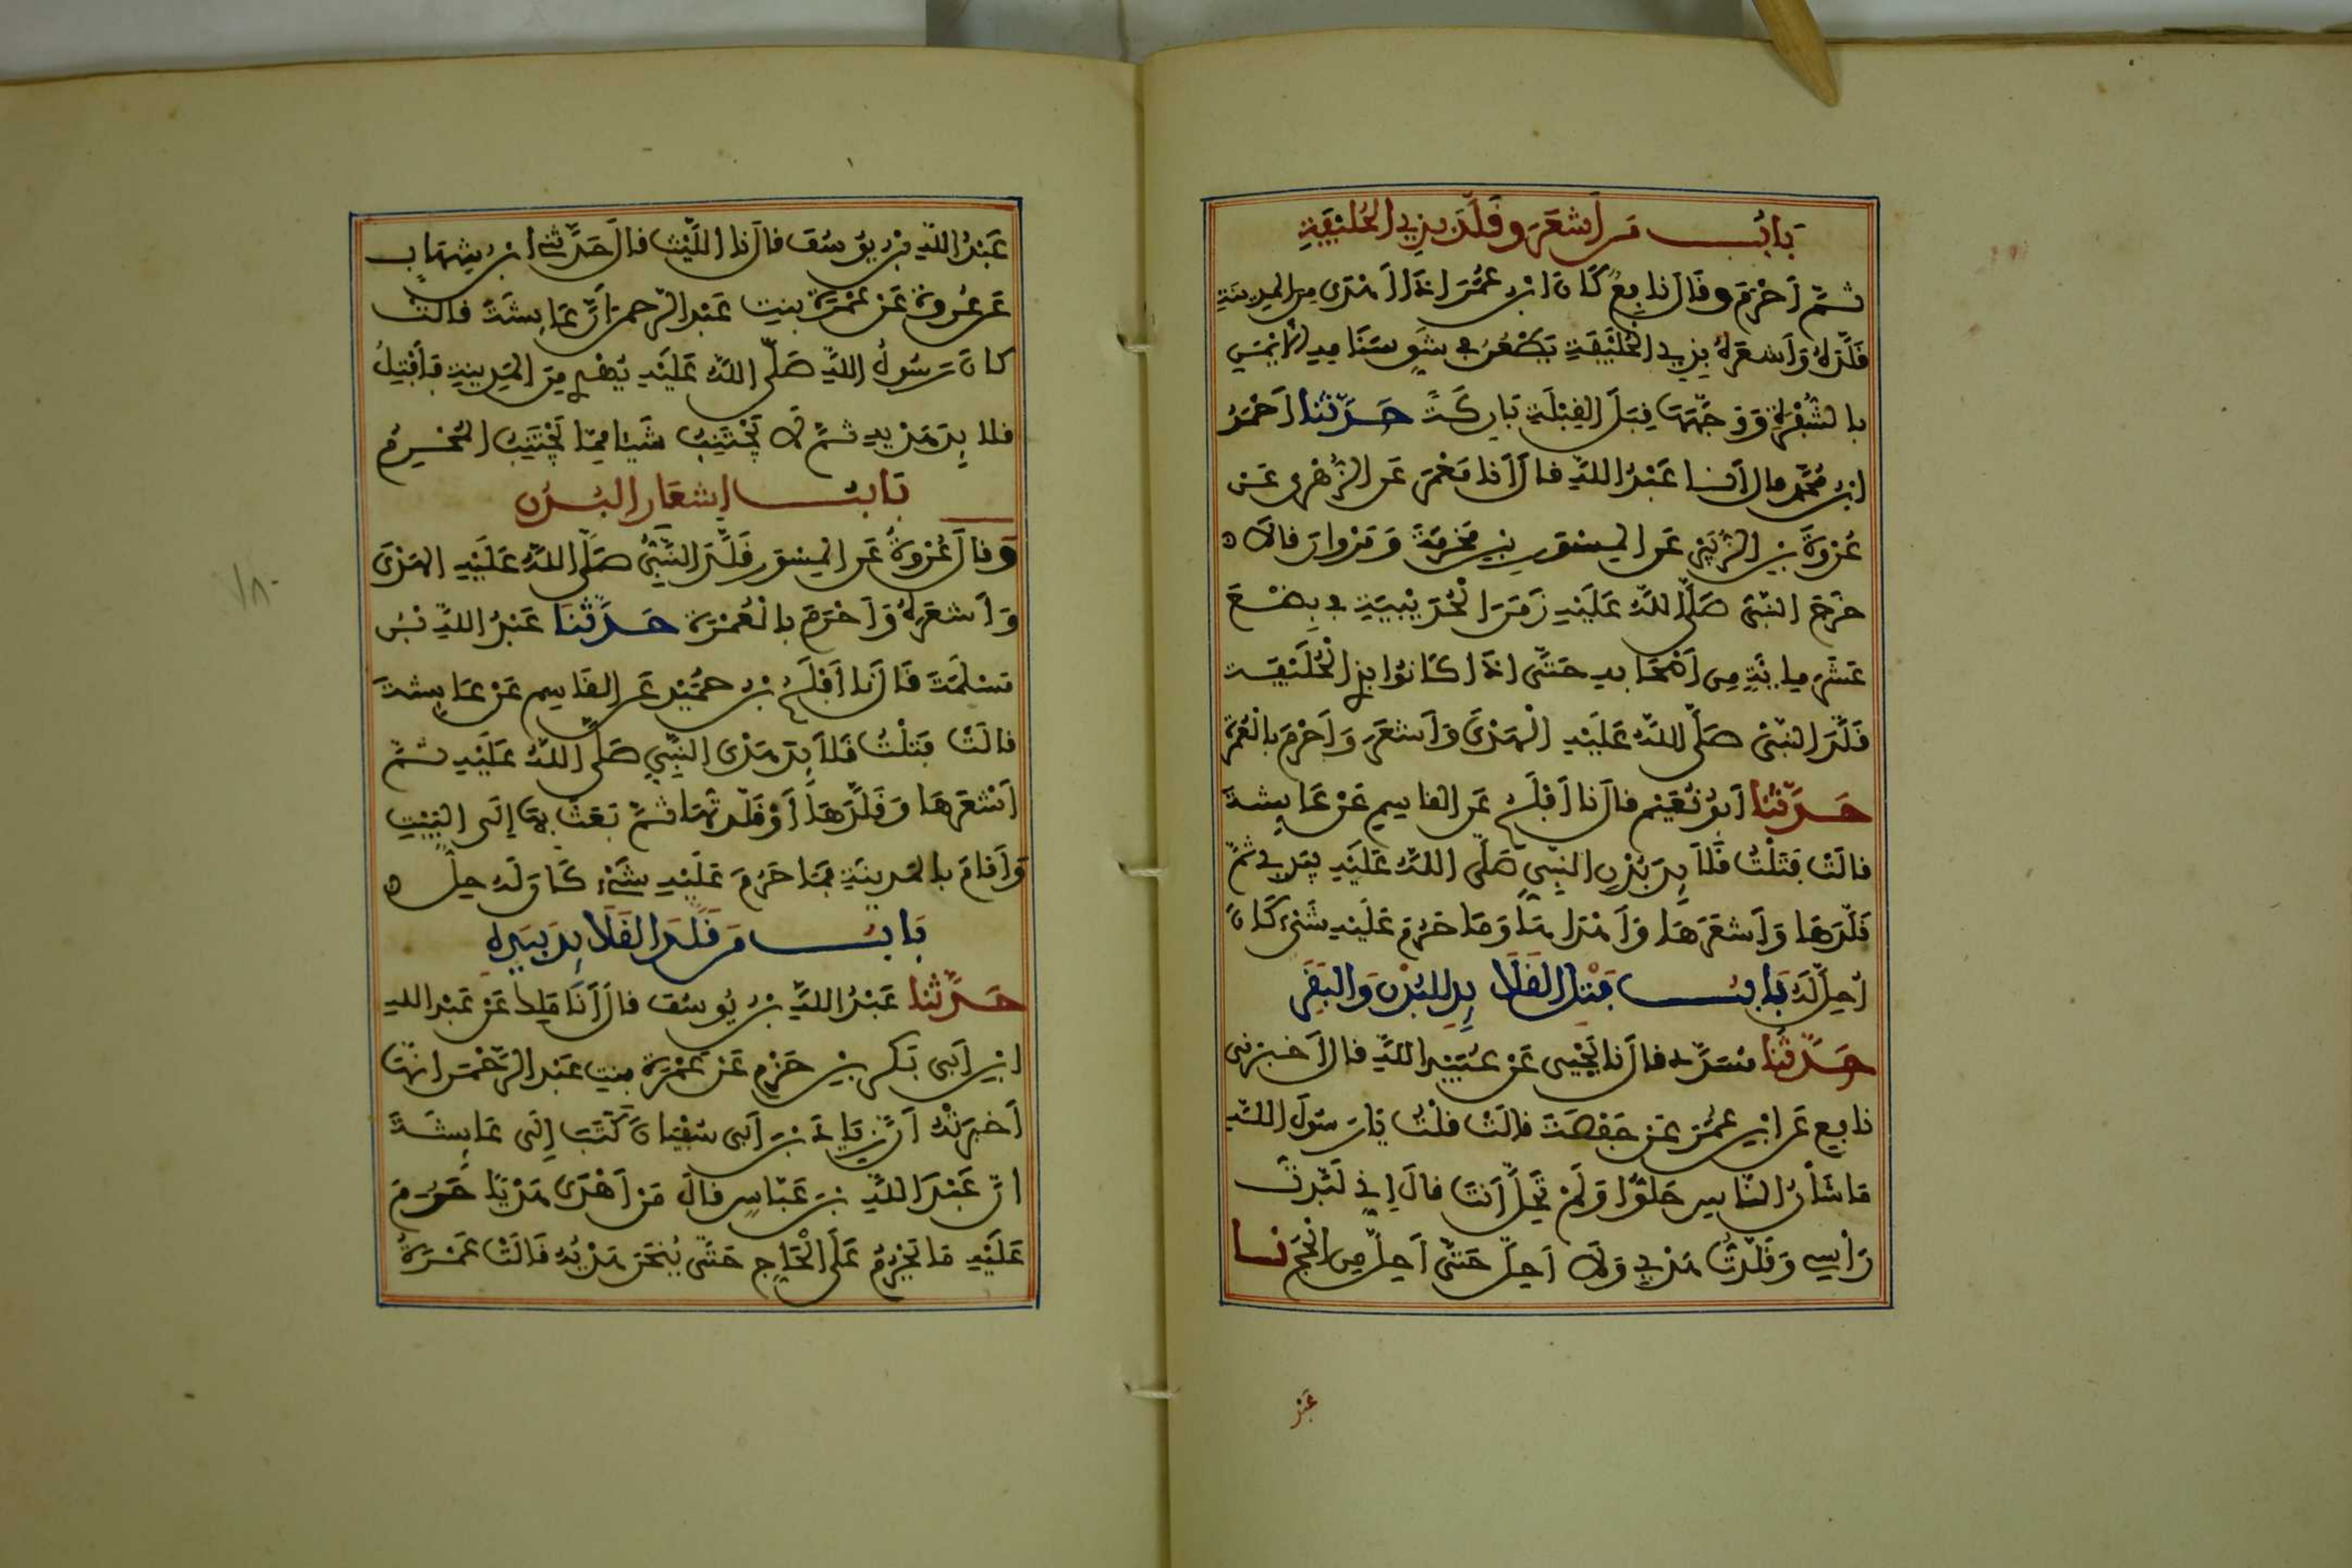 بَابُ مَن اَشعَرَ وقَلَّدَ بِذِي الحُلَيْفَةِ
ثُمَّ اَحْرَمَ وقَالَ نَافِعٌ كَانَ ابْنُ عُمَرَ اِذَا اَهْدَى مِنَ المَدِينَةِ
قَلَّدَهُ وَاَشعَرَهُ بِذِي الحُلَيْفَةِ يَطْعُنُ في شِقِّ سَنَامِهِ الاَيْمَنِ
بالشَّفْرَةِ وَوَجْهُهَا قِبَلَ القِبْلَةِ بَارِكَةً حَدَّثَنَا اَحْمَدُ
ابنُ مُحَمَّدٍ قال اَنا عَبْدُ اللهِ قالَ اَنا مَعْمَرٌ عَنِ الزُّهْرِي عَنْ
عُرْوَةَ بنِ الزُّبَيْرِ عَنِ المِسْوَرِ بنِ مَخْرَمَةَ وَمَرْوَانَ قَالاَ
خَرَجَ النَّبيُّ صَلَّى اللهُ عَلَيْهِ زَمَنَ الحُدَيْبِيَةِ في بِضْعَ
عَشَرَ مِائَةٍ مِن اَصْحَابِهِ حَتَّى اِذَا كَانُوا بِذِي الحُلَيْفَةِ
قَلَّدَ النَّبيُّ صَلَّى اللهُ عَلَيْهِ الْهَدْيَ وَاَشعَرَ وَاَحْرَمَ بِالْعُمْرَةِ
حَدَّثَنَا اَبُو نُعَيْمٍ قالَ نا اَفْلَحُ عَنِ القاسِمِ عَنْ عَايِشَةَ
قالَتْ فَتَلْتُ قَلاَيِدَ بُدْنِ النَّبِيِّ صَلَّى اللهُ عَلَيْهِ بِيَدِي ثُمَّ
قَلَّدَهَا وَاَشعَرَهَا وَاَهْدَاهَا وَمَا حَرُمَ عَلَيْهِ شَيْءٌ كَانَ
اُحِلَّ لَهُ بَابُ فَتْلِ القَلاَيِدِ لِلبُدْنِ وَالبَقَرِ
حَدَّثَنَا مُسَدَّدٌ قالَ نا يَحْيَى عَنْ عُبَيْدِ اللهِ قالَ اَخبَرَنِي
نافِعٌ عَنِ ابْنِ عُمَرَ عَنْ حَفْصَةَ قالَتْ قُلْتُ يَا رَسُولَ اللهِ
مَا شَأْنُ النَّاسِ حَلُّوا وَلَمْ تَحِلَّ اَنتَ قالَ اِنِّي لَبَّدتُ
رَأْسِي وَقَلَّدتُ هَدْيِي وَلاَ اَحِلُّ حَتَّى اَحِلَّ مِنَ الْحَجِّ نا
عَبْدُ
عَبْدُ اللهِ بنُ يُوسُفَ قالَ نا اللَّيْثُ قالَ حَدَّثَنِي ابْنُ شِهَابٍ
عَن عُروَةَ عَنْ عَمْرَةَ بِنتِ عَبْدِ الرَّحمَنِ اَنَّ عَايِشَةَ قَالَتْ
كَانَ رَسُولُ اللهِ صَلَّى اللهُ عَلَيْهِ يُهْدِي مِنَ المَدِينَةِ فَأَفْتِلُ
قَلاَيِدَ هَدْيِهِ ثُمَّ لاَ يَجْتَنِبُ شَيئا مِمَّا يَجْتَنِبُ المُحْرِمُ
بَابُ اِشعَارِ البُدْنِ
وَقالَ عُرْوَةُ عَنِ المِسْوَرِ قَلَّدَ النَّبِيُّ صَلَّى اللهُ عَلَيْهِ الهَدْيَ
وَاَشعَرَهُ وَاَحْرَمَ بِالْعُمْرَةِ حَدَّثَنَا عَبْدُ اللهِ بْنُ
مَسْلَمَةَ قَالَ نا اَفْلَحُ بْنُ حُمَيْدٍ عَنِ القَاسِمِ عَنْ عَايِشَةَ
قالَتْ فَتَلْتُ قَلاَيِدَ هَدْيِ النَّبِيِّ صَلَّى اللهُ عَلَيْهِ ثُمَّ
اَشْعَرَهَا وَقَلَّدَهَا اَوْ قَلَّدتُهَا ثُمَّ بَعَثَ بِهَا اِلَى البَيْتِ
وَاَقَامَ بالمَدِينَةِ فمَا حَرُمَ عَلَيْهِ شَيْءٌ كَانَ لَهُ حِلٌّ
بَابُ مَن قَلَّدَ القَلاَيِدَ بِيَدِهِ
حَدَّثَنَا عَبْدُ اللهِ بْنُ يُوسُفَ قالَ اَنَا مَلِكٌ عَنْ عَبْدِ اللهِ
ابْنِ اَبِي بَكرِ بْنِ حَزْمٍ عَنْ عَمْرَةَ بِنتِ عَبْدِ الرَّحْمَنِ انَّهَا
اَخبَرَتْهُ اَنَّ زِيَادَ بْنَ اَبِي سُفْيَانَ كَتَبَ اِلَى عَايِشَةَ
اَنَّ عَبْدَ اللهِ بْنَ عَبَّاسٍ قالَ مَنْ اَهْدَى هَدْيًا حَرُمَ
عَلَيْهِ مَا يَحْرُمُ عَلَى الْحَاجِّ حَتَّى يُنْحَرَ هَدْيُهُ قَالَتْ عَمْرَةُ